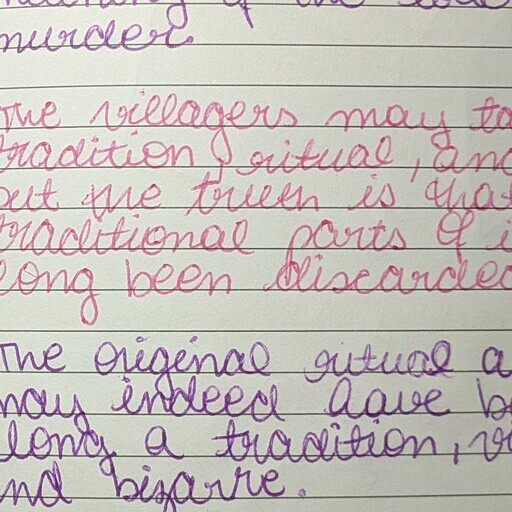 murder.
The villagers may ta
tradition, ritual, and
but the truth is that
traditional parts of i
long been discarded
The original ritual a
may indeed have be
long a tradition, vi
and bizarre.